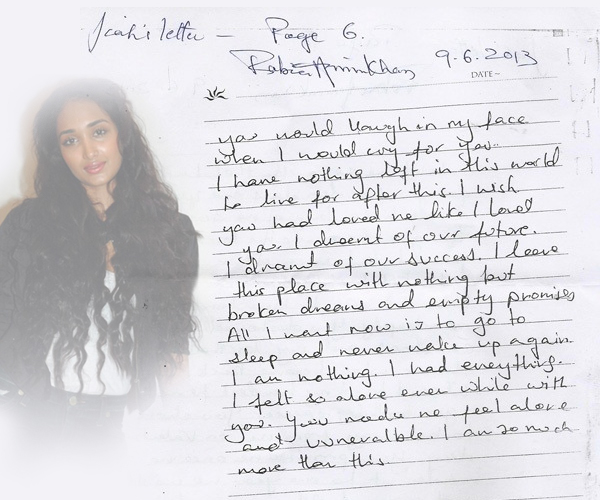 Jiah's letter – Page 6.
Rabia Amin Khan 9.6.2013
DATE~
you would laugh in my face
when I would cry for you.
I have nothing left in this world
to live for after this. I wish
you had loved me like I loved
you. I dreamt of our future.
I dreamt of our success. I leave
this place with nothing but
broken dreams and empty promises
All I want now is to go to
sleep and never wake up again.
I am nothing. I had everything.
I felt so alone even while with
you. You made me feel alone
and vuneralble. I am so much
more than this.